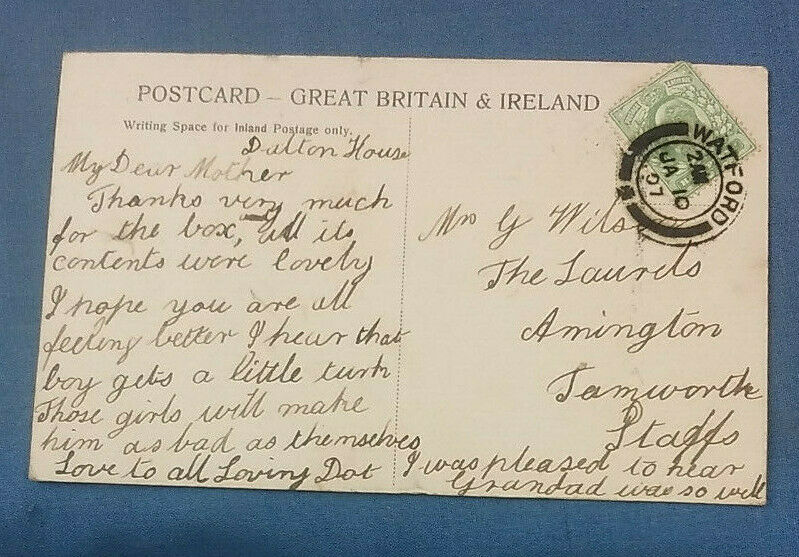 POSTCARD – GREAT BRITAIN & IRELAND
Writing Space for Inland Postage only.
Dalton House
My Dear Mother
Thanks very much
for the box, all its
contents were lovely
I hope you are all
feeling better I hear that
boy gets a little turk
Those girls will make
him as bad as themselves
Love to all Loving Dot
I was pleased to hear
Grandad was so well
Mrs G Wilson
The Laurels
Amington
Tamworth
Staffs
WATFORD
JA 10
07